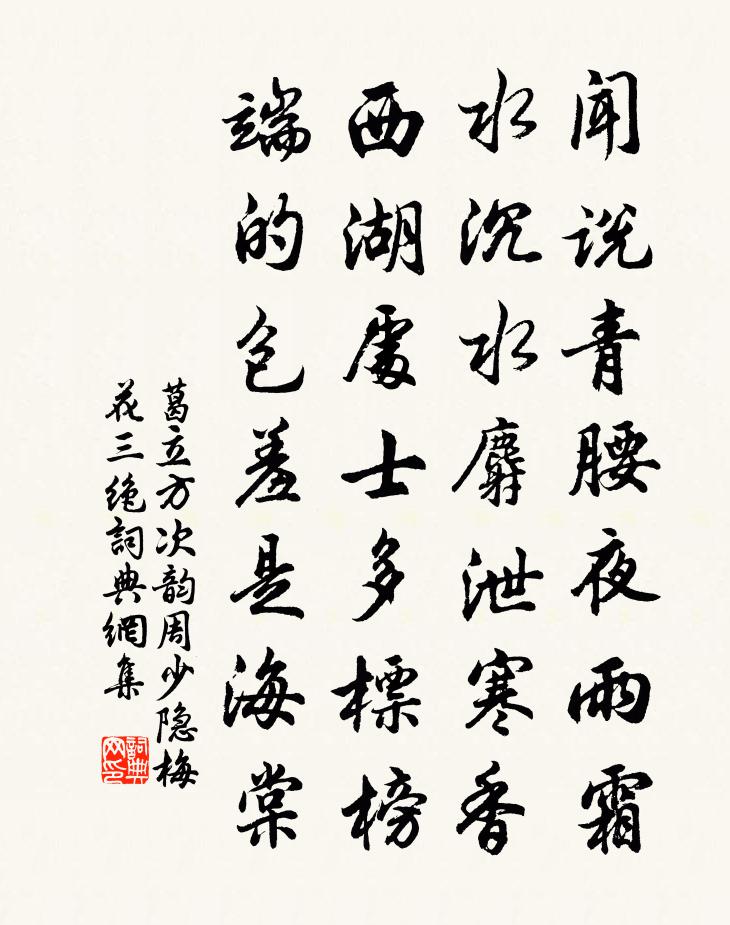 闻说青腰夜雨霜
水沉水麝泄寒香
西湖处士多标榜
端的包羞是海棠
葛立方次韵周少隐梅
花三绝词典网集
詞典
网印